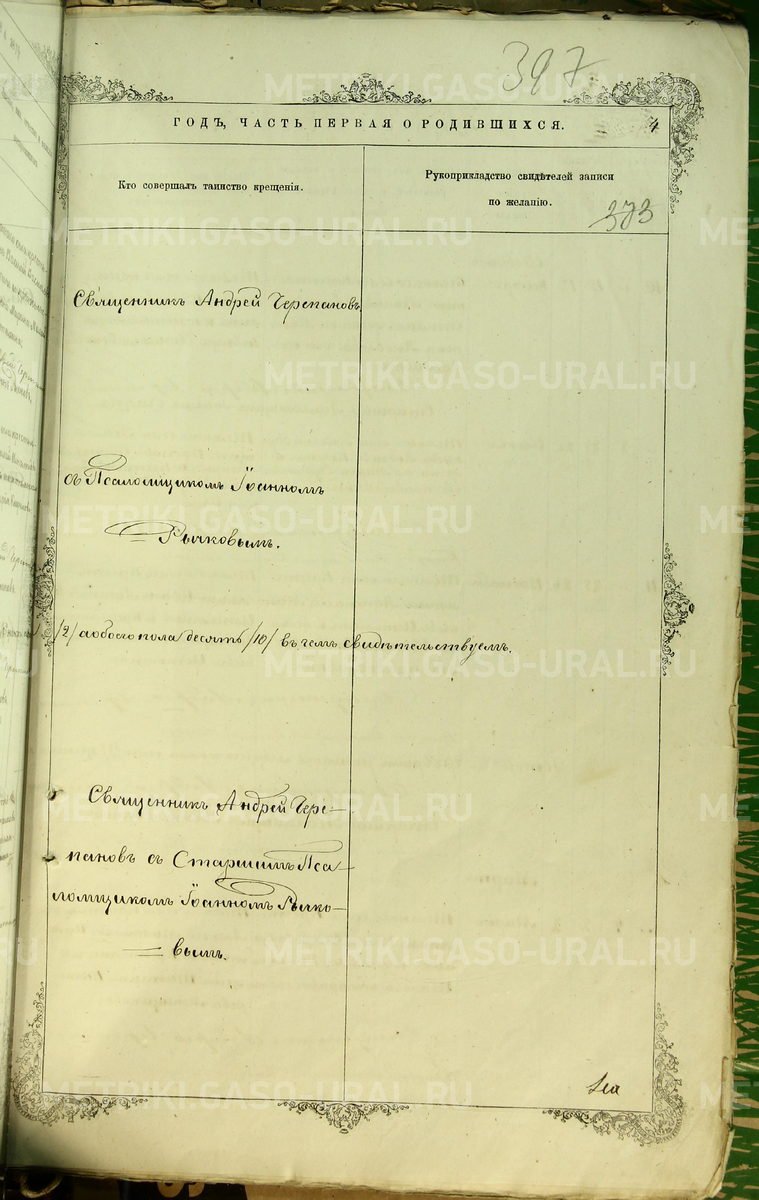 397
ГОДЪ, ЧАСТЬ ПЕРВАЯ О РОДИВШИХСЯ.
4
Кто совершалъ таинство крещенія.
Рукоприкладство свидѣтелей записи
по желанію.
373
Священникъ Андрей Черепановъ
съ Псаломщикомъ Іоанномъ
Рычковымъ.
/2/ а обоего пола десять /10/ въ чемъ свидѣтельствуемъ.
Священникъ Андрей Чере-
пановъ съ Старшимъ Пса-
ломщикомъ Іоанномъ Рычко-
вымъ.
METRIKI.GASO-URAL.RU